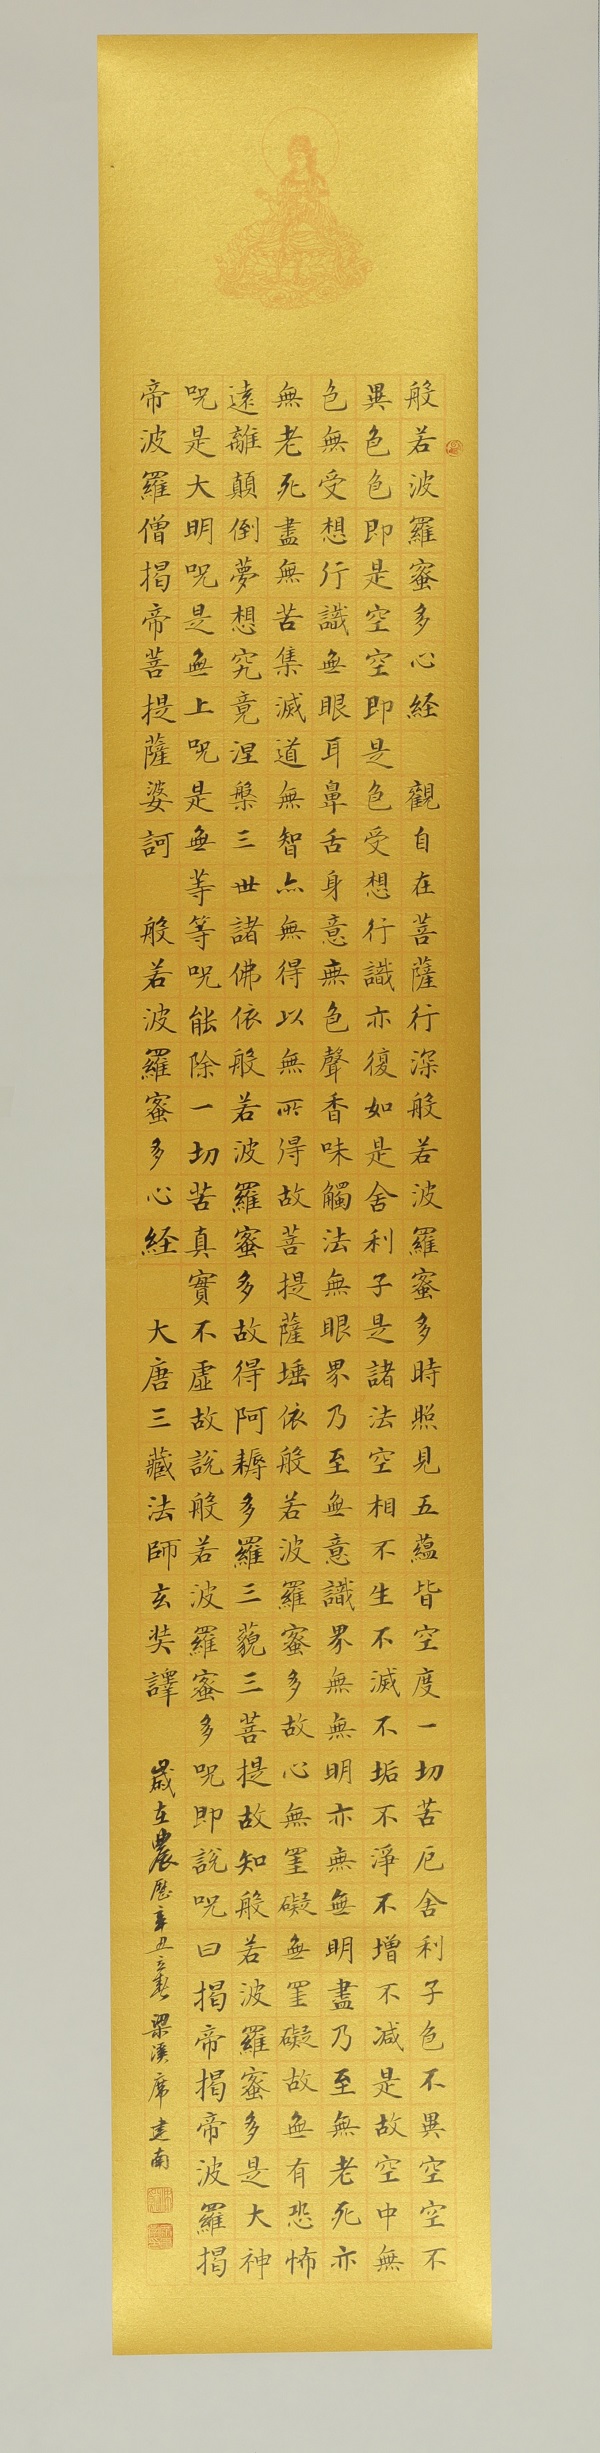 般若波羅蜜多心経 觀自在菩薩行深般若波羅蜜多時照見五蘊皆空度一切苦厄舍利子色不異空空不
異色色即是空空即是色受想行識亦復如是舍利子是諸法空相不生不滅不垢不淨不增不減是故空中無
色無受想行識無眼耳鼻舌身意無色聲香味觸法無眼界乃至無意識界無無明亦無無明盡乃至無老死亦
無老死盡無苦集滅道無智亦無得以無所得故菩提薩埵依般若波羅蜜多故心無罣礙無罣礙故無有恐怖
遠離顛倒夢想究竟涅槃三世諸佛依般若波羅蜜多故得阿耨多羅三藐三菩提故知般若波羅蜜多是大神
呪是大明呪是無上呪是無等等呪能除一切苦真實不虛故說般若波羅蜜多呪即說呪曰揭帝揭帝波羅揭
帝波羅僧揭帝菩提薩婆訶 般若波羅蜜多心経 大唐三藏法師玄奘譯 歲在農歷辛丑立春 梁溪席建南